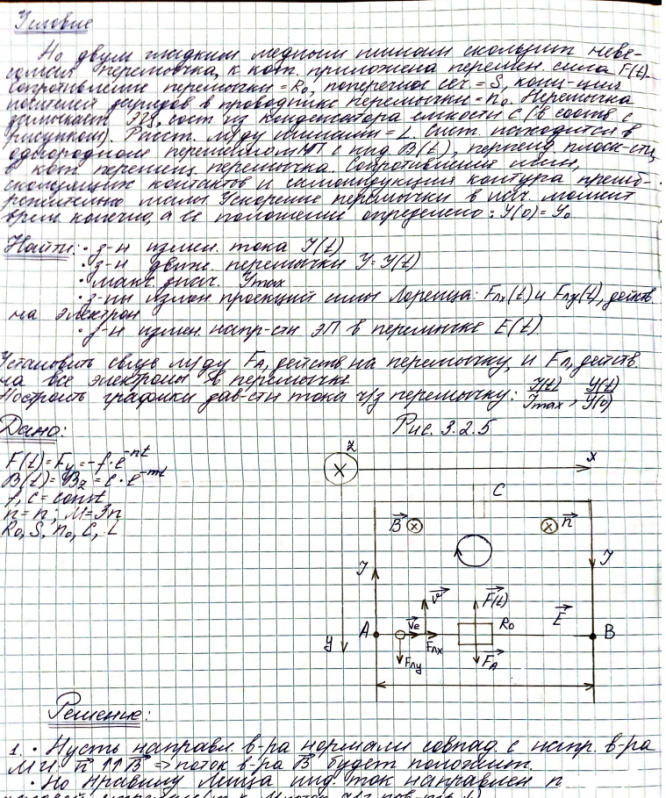 Условие
По двум гладким медным шинам скользит неве-
сомая перемычка, к кот. приложена перемен. сила F(t).
Сопротивление перемычки = R₀, поперечное сеч = S, конц-ция
носителей зарядов в проводнике перемычки = n₀. Перемычка
замыкает ЭЦ, сост. из конденсатора емкости C (в соотв с
рисунком). Расст. м/ду шинами = L. Сист. находится в
однородном переменном МП с инд. B(t), перпенд. плоск-сти,
в кот перемещ. перемычка. Сопротивления шин,
скользящих контактов и самоиндукция контура прене-
брежительно малы. Ускорение перемычки в нач. момент
врем конечно, а ее положение определено: У(0) = У₀
Найти: · з-н измен. тока I(t)
· з-н движ. перемычки У = У(t)
· макс. знач. Imax
· з-ны измен проекций силы Лоренца: Fлx(t) и Fлy(t), действ
на электрон
· з-н измен. напр-сти ЭП в перемычке E(t)
Установить связь м/ду FА, действ на перемычку, и Fл, действ.
на все электроны в перемычке.
Построить графики зав-сти тока ч/з перемычку: I(t)/Imax, У(t)/У(0)
Дано:
Рис. 3.2.5
F(t) = Fy = -f·e^-nt
B(t) = Bz = c·e^-mt
f, c = const
n = n; м = 3n
R₀, S, n₀, C, L
z
x
C
B
n
I
I
V
F(t)
E
A
Ve
Fлx
R₀
B
y
Fлy
FА
Решение:
1. · Пусть направл. в-ра нормали совпад. с напр. в-ра
МИ. n ↑↑ B => поток в-ра B будет положит.
· По правилу Ленца инд. ток направлен п